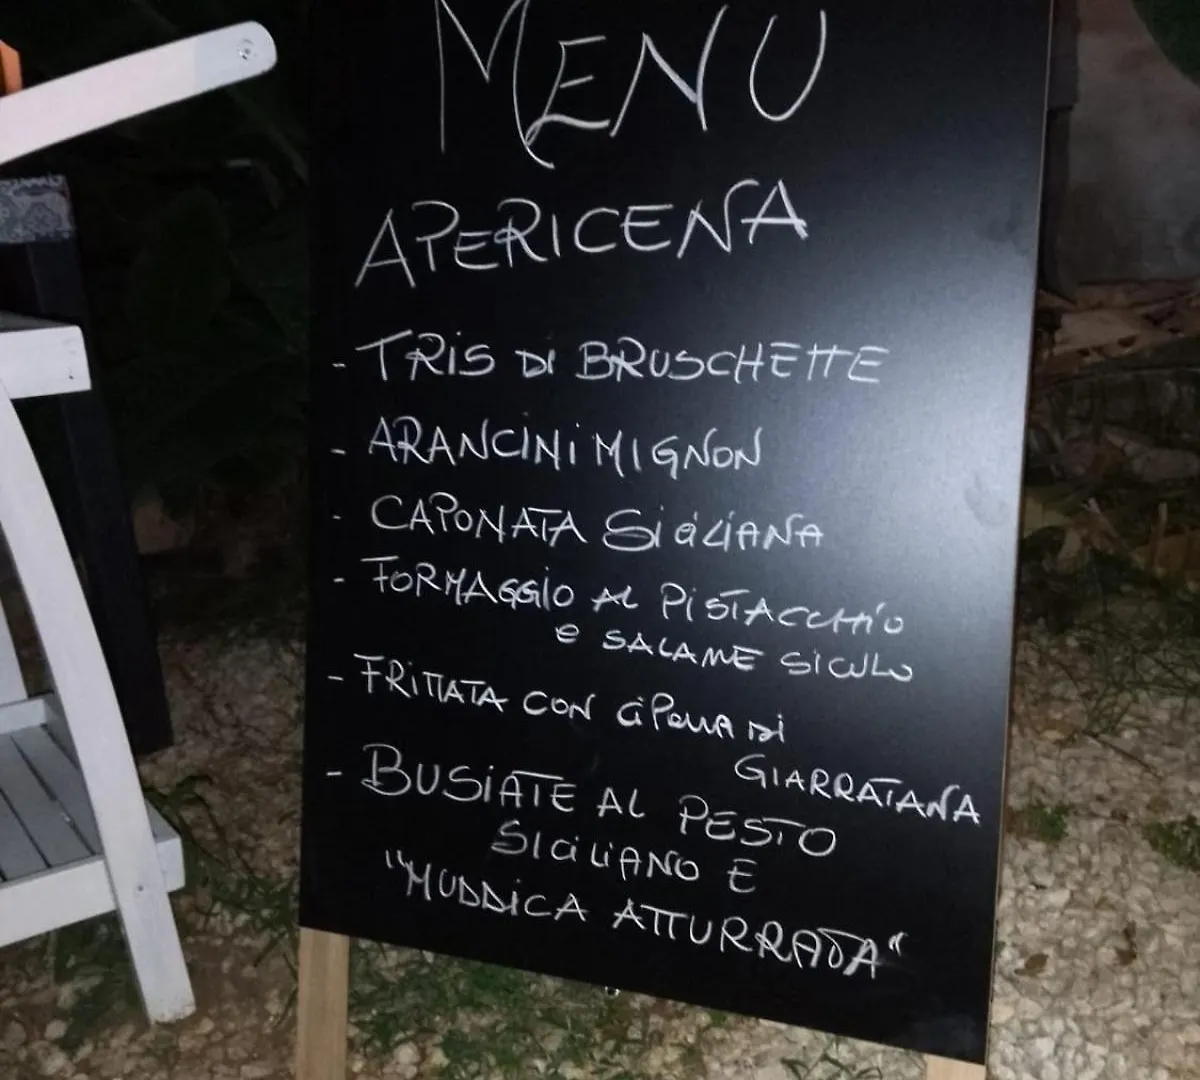 MENU
APERICENA
- TRIS Di BRUSCHETTE
- ARANCINI MIGNON
- CAPONATA SiciLIANA
- FORMAGGIO AL PiSTACCHiO
e SALAME SICULO
- FRITTATA CON CiPOLLA Di
GIARRATANA
- BUSIATE AL PESTO
SICILIANO E
"MUDDICA ATTURRATA"